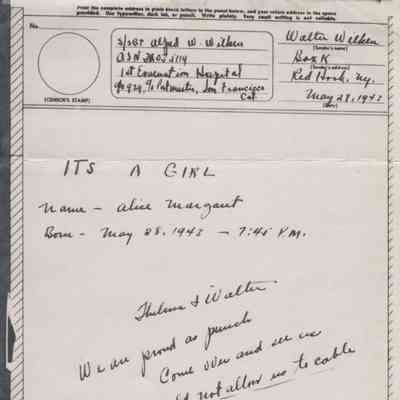 Print the complete address in plain block letters in the panel below, and your return address in the space
provided. Use typewriter, dark ink, or pencil. Write plainly. Very small writing is not suitable.
No.
(CENSOR'S STAMP)
S/Sgt Alfred W. Wilken
1st Evacuation Hospital
APO 929, % Postmaster, San Francisco
Cal.
Walter Wilken
(Sender's name)
Box K
(Sender's address)
Red Hook, Ny.
May 28, 1943
(Date)
ITS A GIRL
Name - Alice Margaret
Born - May 28, 1943 - 7:45 P.M.
Thelma & Walter
We are proud as punch
Come over and see us
not allow us to cable